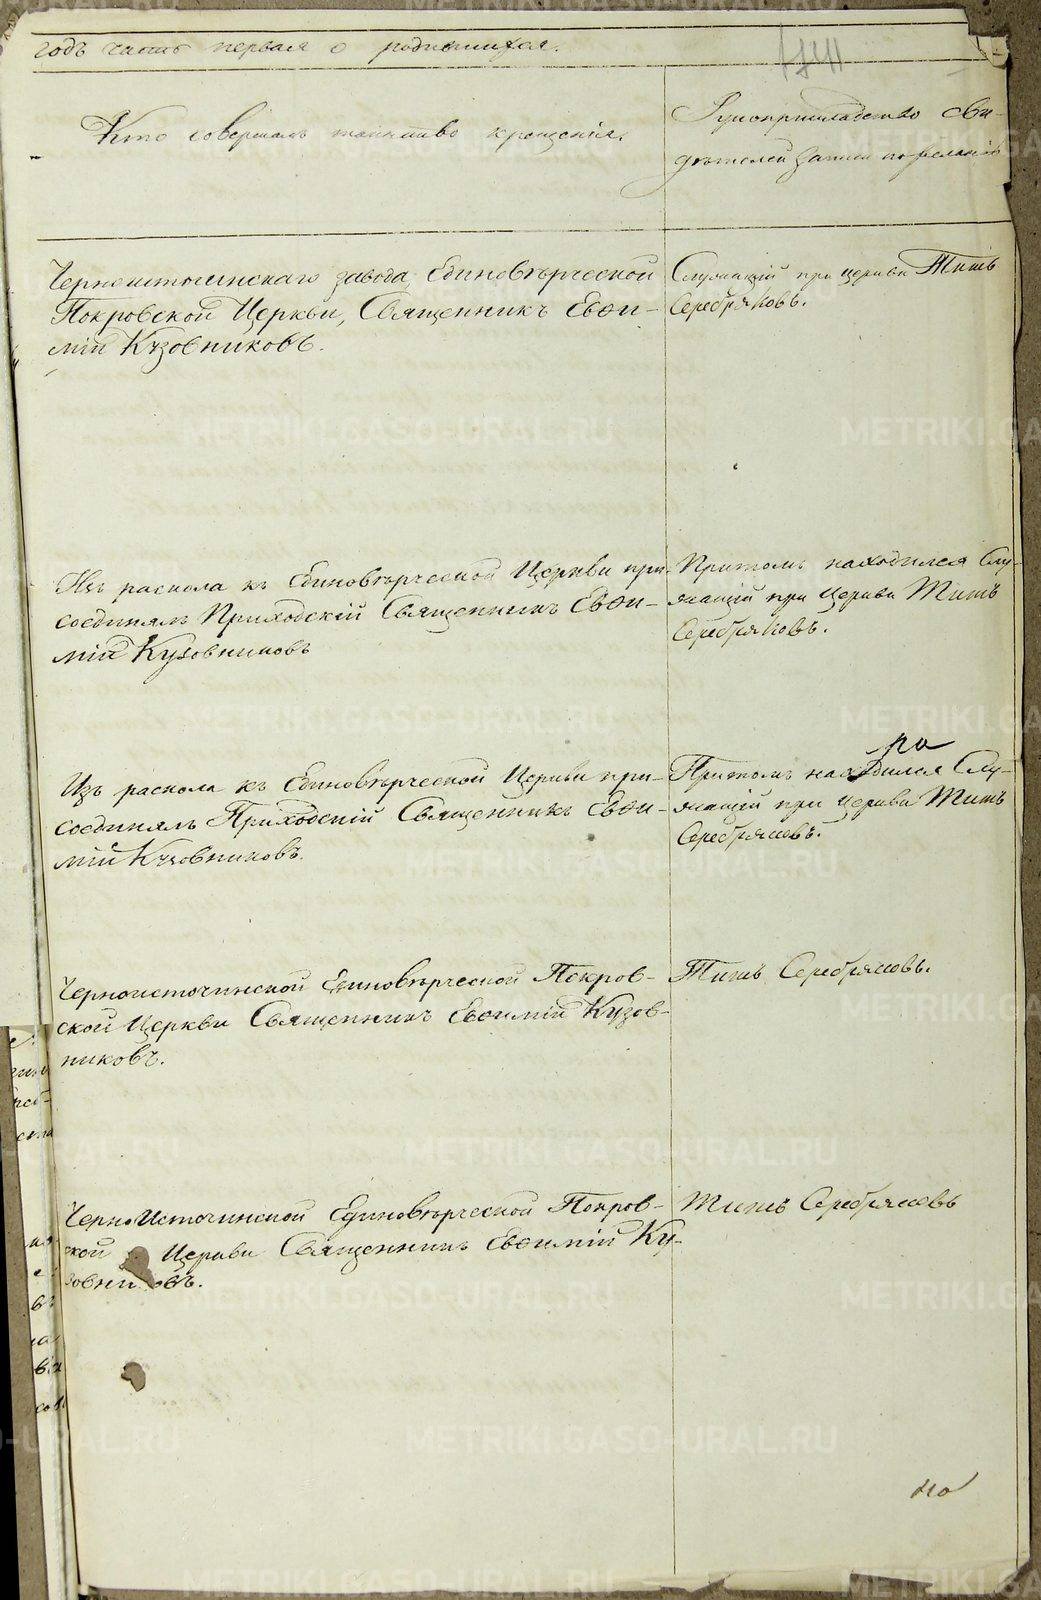 годъ часть первая о родившихся.
Кто совершалъ таинство крещенія.
Рукоприкладство сви-
дѣтелей записи по желанію
Черноисточинскаго завода, Единовѣрческой
Покровской Церкви, Священникъ Евѳи-
мій Кузовниковъ.
Служащій при церкви Титъ
Серебряковъ.
Изъ раскола къ Единовѣрческой Церкви при-
соединялъ Приходскій Священникъ Евѳи-
мій Кузовниковъ
Притомъ находился Слу-
жащій при церкви Титъ
Серебряковъ.
Изъ раскола къ Единовѣрческой Церкви при-
соединялъ Приходскій Священникъ Евѳи-
мій Кузовниковъ.
по
Притомъ находился Слу-
жащій при церкви Титъ
Серебряковъ.
Черноисточинской Единовѣрческой Покров-
ской Церкви Священникъ Евѳимій Кузов-
никовъ.
Титъ Серебряковъ.
Черноисточинской Единовѣрческой Покров-
ской Церкви Священникъ Евѳимій Ку-
зовниковъ.
Титъ Серебряковъ
по
METRIKI.GASO-URAL.RU